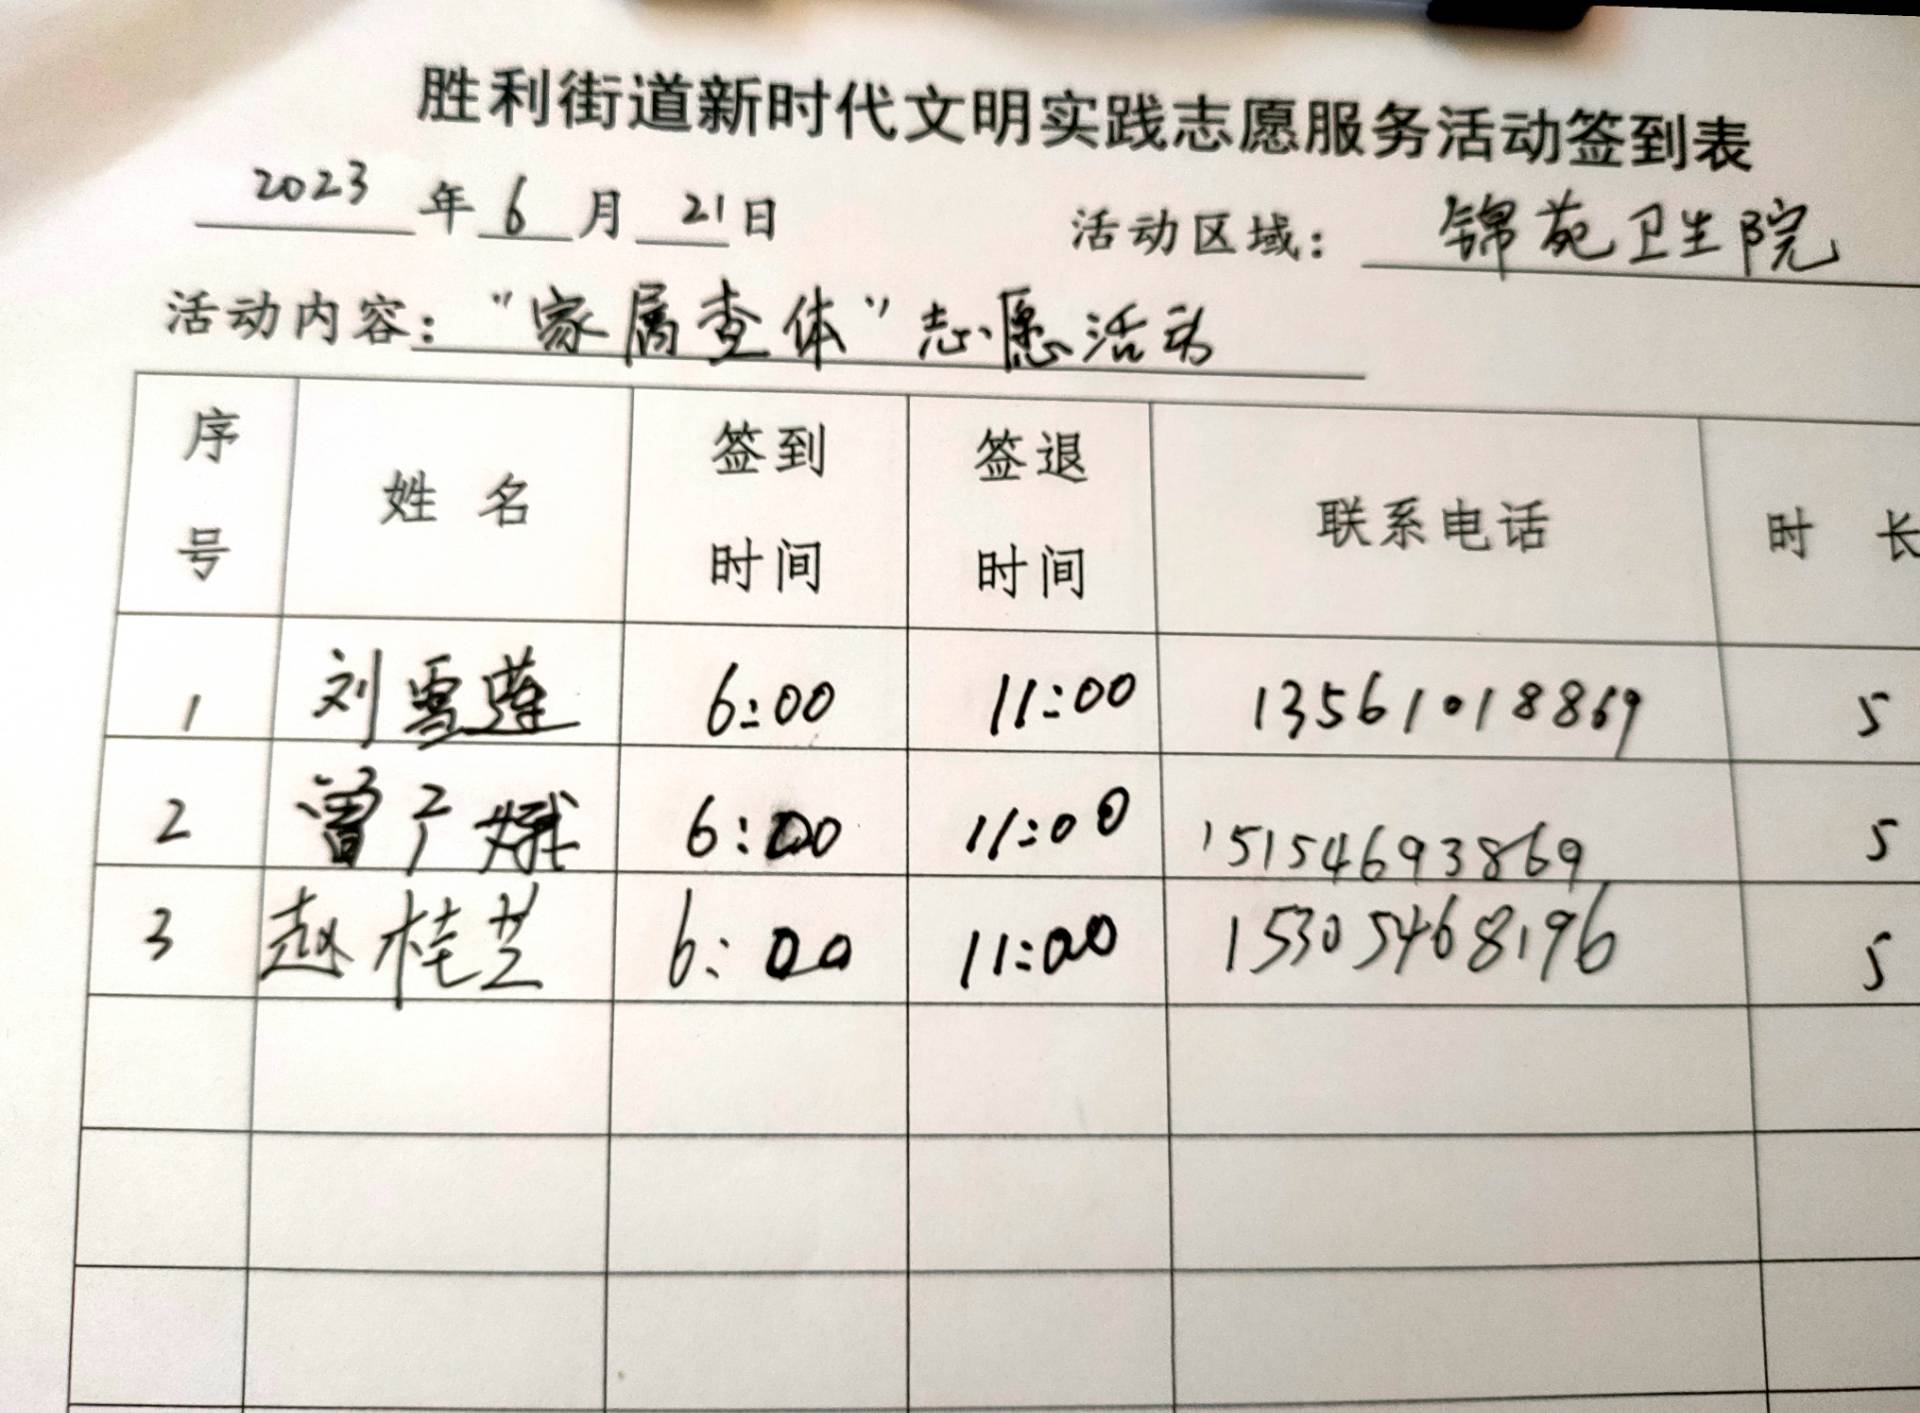 胜利街道新时代文明实践志愿服务活动签到表
2023年6月21日 活动区域：锦苑卫生院
活动内容："家属查体"志愿活动
序号 姓名 签到时间 签退时间 联系电话 时长
1 刘雪莲 6:00 11:00 13561018869 5
2 曾广娥 6:00 11:00 15154693869 5
3 赵桂芝 6:00 11:00 15305468196 5